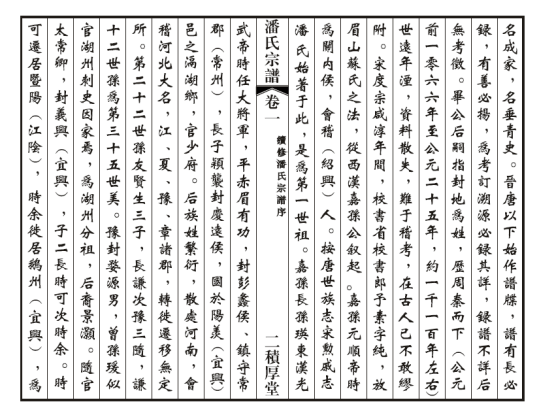 名成家，名垂青史。晉唐以下始作譜牒，譜有長必
錄，有善必揚，為考訂溯源必錄其詳，錄譜不詳后
無考徵。畢公后嗣指封地為姓，歷周秦而下（公元
前一零六六年至公元二十五年，約一千一百年左右）
世遠年湮，資料散失，難于稽考，在古人已不敢繆
附。宋度宗咸淳年間，校書省校書郎予素字純，放
眉山蘇氏之法，從西漢嘉孫公叙起。嘉孫元順帝時
為關内侯，會稽（紹興）人。按唐世族志宋勲戚志
潘氏始著于此，是為第一世祖。嘉孫長孫瑛東漢光
續修潘氏宗譜序
潘氏宗譜
卷一
二積厚堂
武帝時任大將軍，平赤眉有功，封彭蠡侯、鎮守常
郡（常州），長子穎襲封慶遠侯，國於陽羨（宜興）
邑之滆湖鄉，官少府。后族姓繁衍，散處河南，會
稽河北大名，江、夏、豫、章諸郡，轉徙遷移無定
所。第二十二世孫友賢生三子，長謙次豫三隨，謙
十二世孫為第三十五世美。豫封婺源男，曾孫瑗似
官湖州刺史因家焉，為湖州分祖，后裔景灝。隨官
太常卿，封義興（宜興），子二長時可次時余。時
可遷居暨陽（江陰），時余徙居鵝州（宜興），為